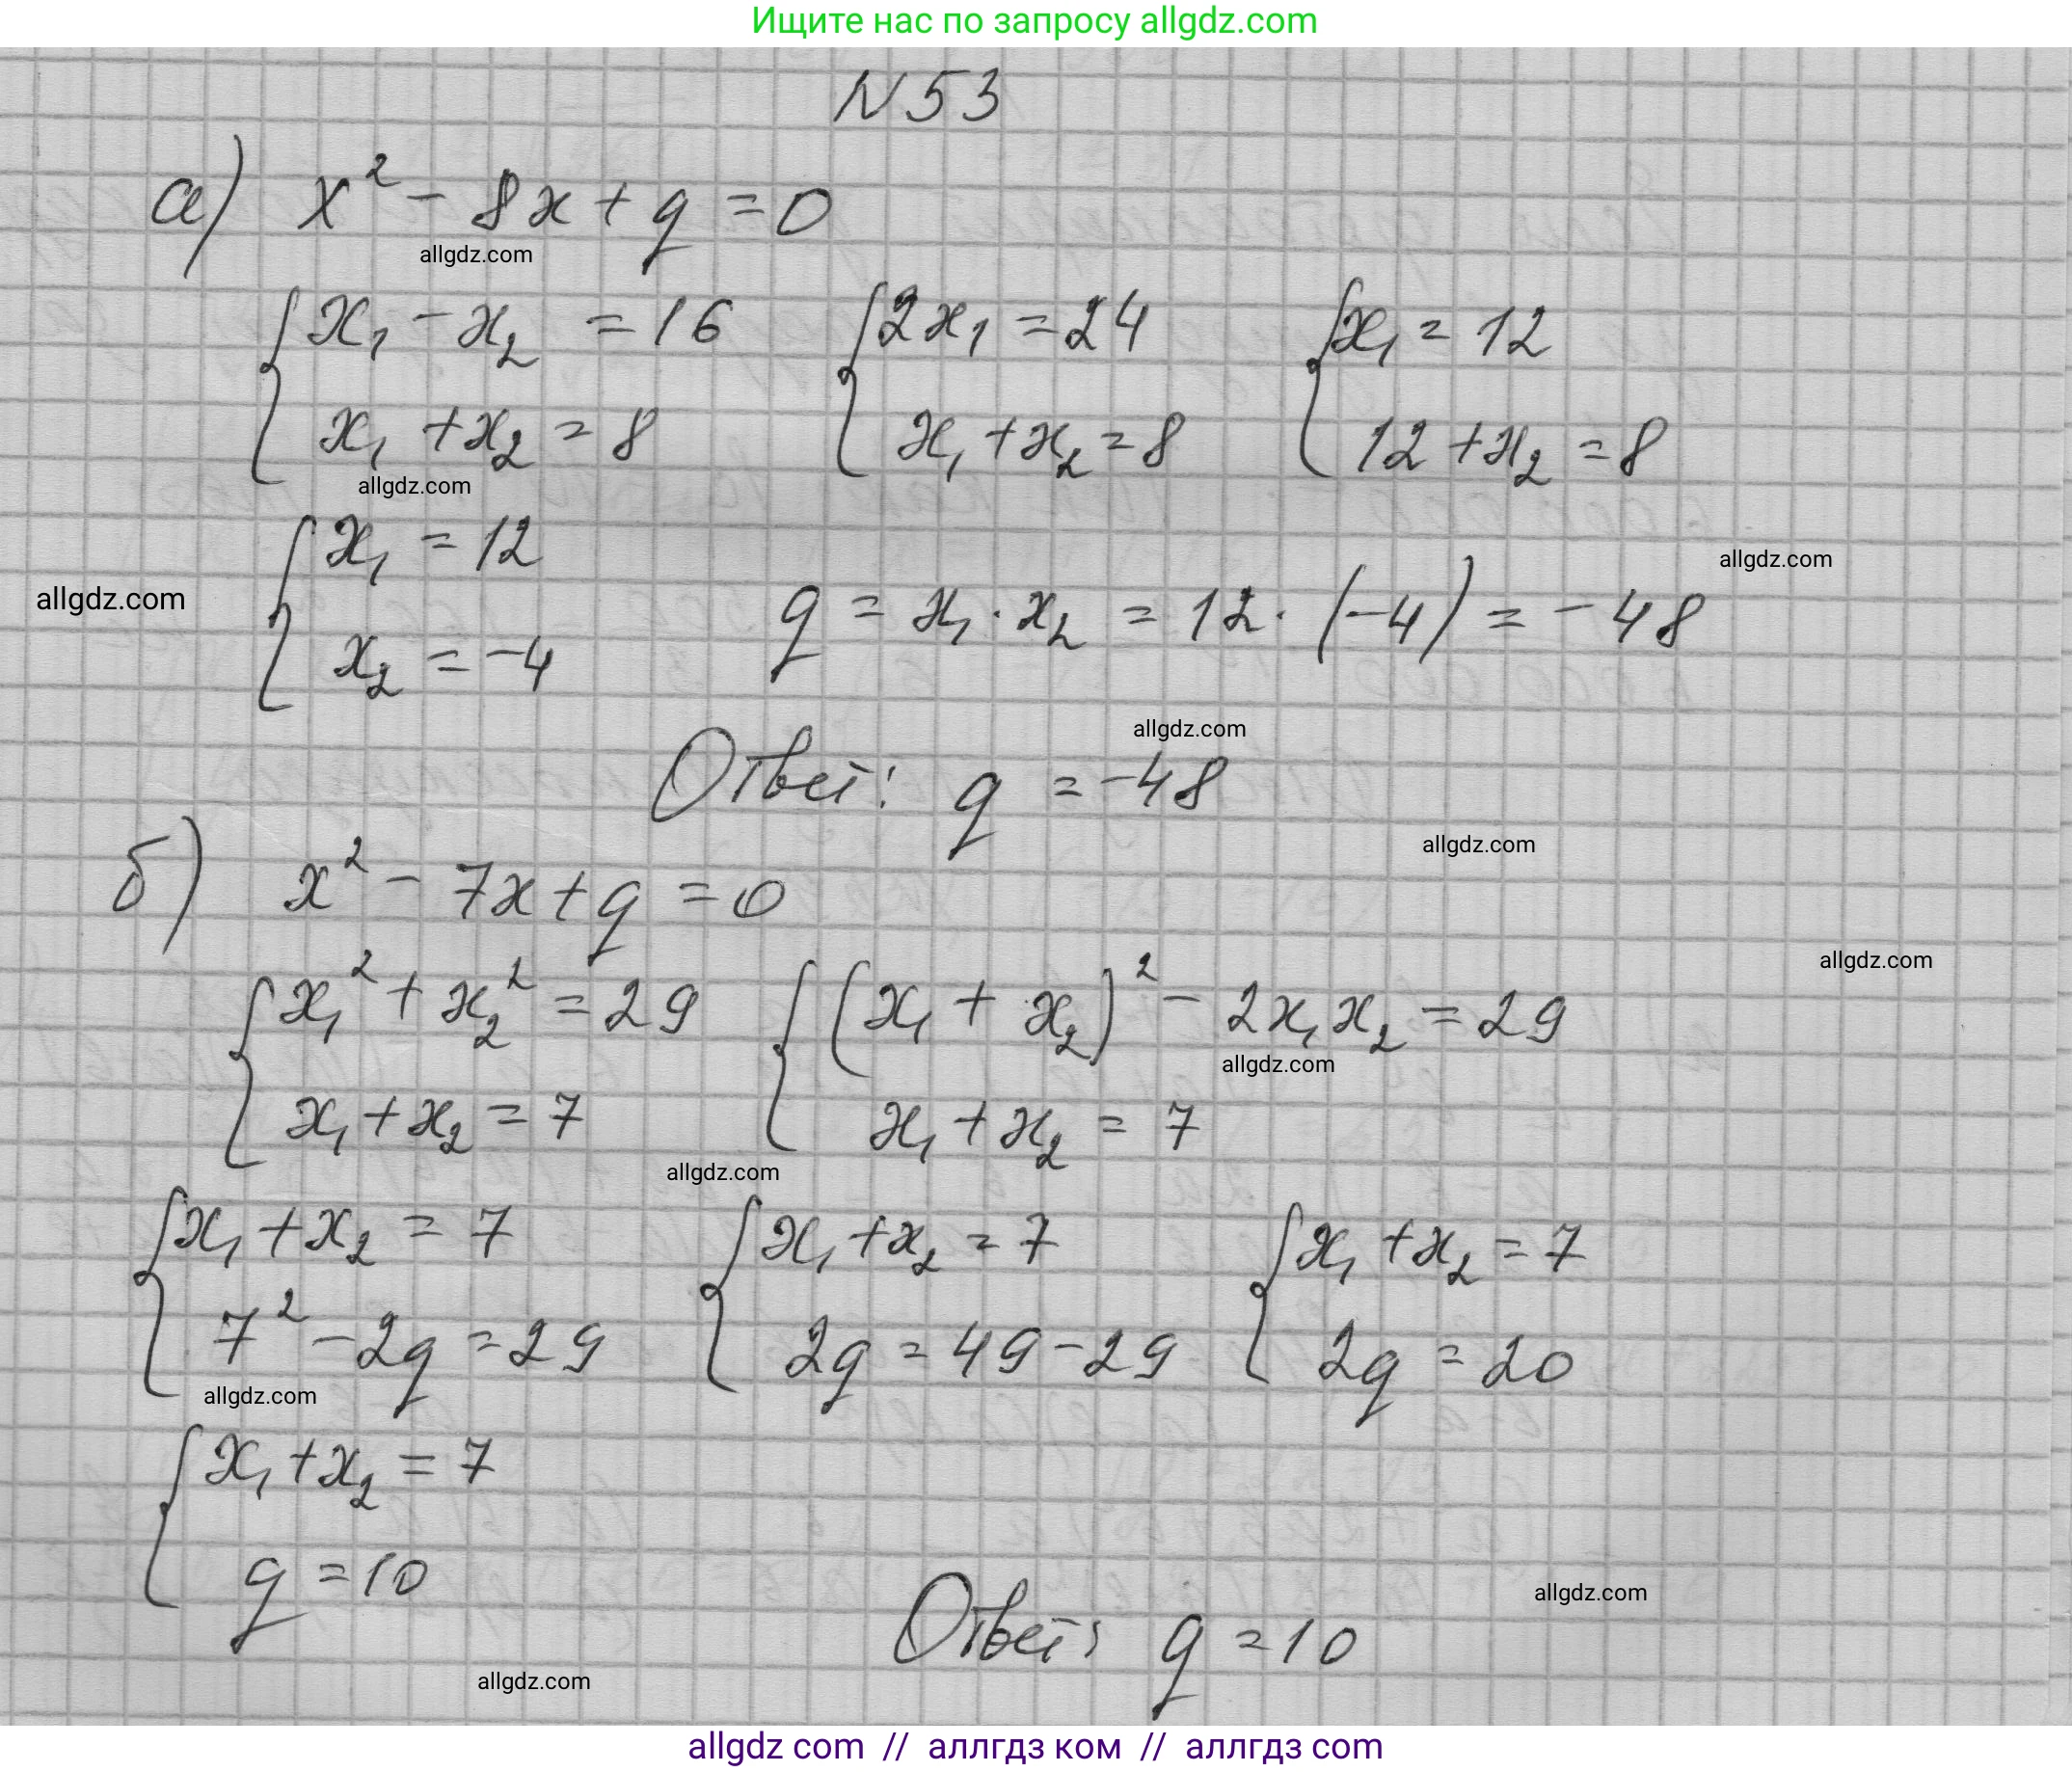 Ищите нас по запросу allgdz.com
N 53
а) x² - 8x + q = 0
allgdz.com
{ x₁ - x₂ = 16 { 2x₁ = 24 { x₁ = 12
{ x₁ + x₂ = 8 { x₁ + x₂ = 8 { 12 + x₂ = 8
allgdz.com
{ x₁ = 12
allgdz.com
allgdz.com
{ x₂ = -4 q = x₁ · x₂ = 12 · (-4) = -48
allgdz.com
Ответ: q = -48
allgdz.com
б) x² - 7x + q = 0
allgdz.com
{ x₁² + x₂² = 29 { (x₁ + x₂)² - 2x₁x₂ = 29
allgdz.com
{ x₁ + x₂ = 7 { x₁ + x₂ = 7
allgdz.com
{ x₁ + x₂ = 7 { x₁ + x₂ = 7 { x₁ + x₂ = 7
{ 7² - 2q = 29 { 2q = 49 - 29 { 2q = 20
allgdz.com
{ x₁ + x₂ = 7
{ q = 10
allgdz.com
Ответ: q = 10
allgdz.com
allgdz com // аллгдз ком // аллгдз com